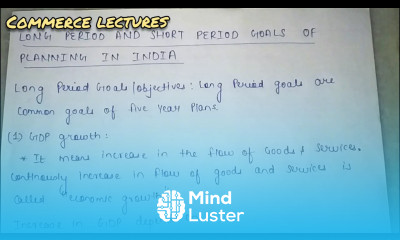 COMMERCE LECTURES
LONG PERIOD AND SHORT PERIOD GOALS OF
PLANNING IN INDIA
Long Period Goals/objectives: Long Period goals are
common goals of five Year Plans
(1) GDP growth:
* It means increase in the flow of Goods & Services.
Continously increase in flow of goods and services is
called "economic growth
Mind
Luster
Increase in GDP